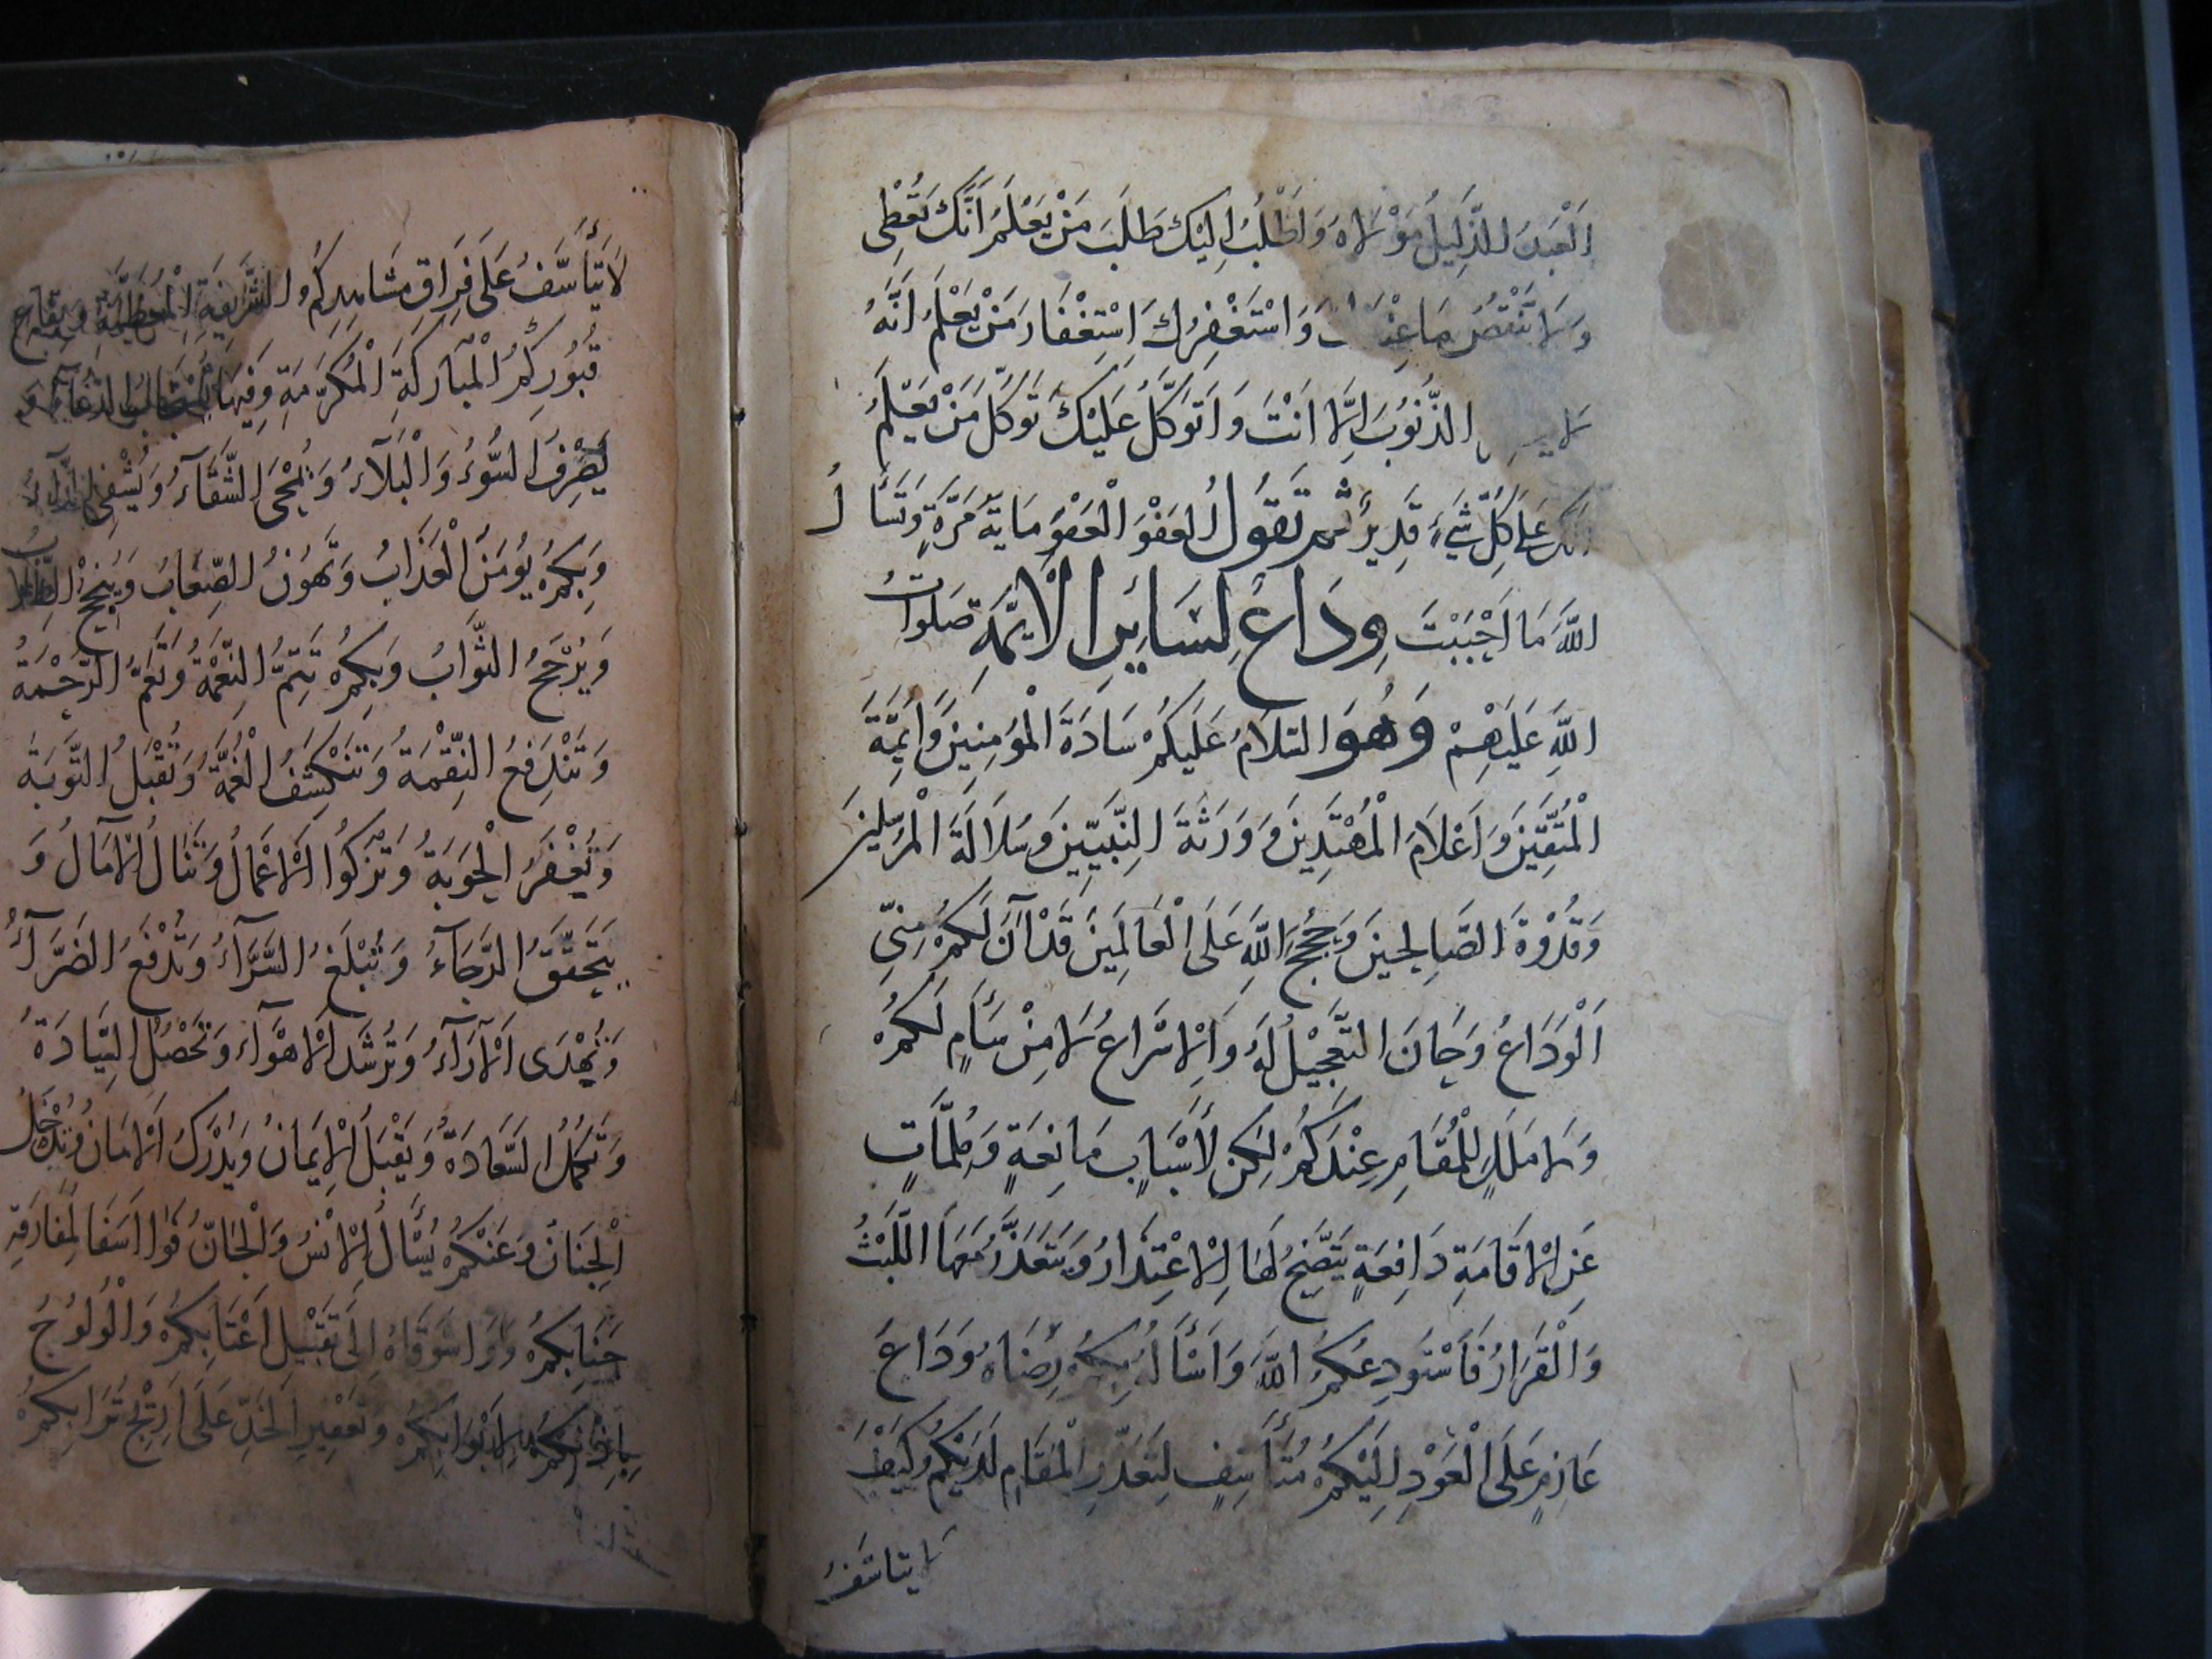 اَلْعَبْدِ الذَّلِيلِ مَوْلَاهُ وَاَطْلُبُ اِلَيْكَ طَلَبَ مَنْ يَعْلَمُ اَنَّكَ تُعْطِي
وَلَا تَنْقُصُ مَا وَاَسْتَغْفِرُكَ اِسْتِغْفَارَ مَنْ يَعْلَمُ اَنَّهُ
الذُّنُوبَ اِلَّا اَنْتَ وَاَتَوَكَّلُ عَلَيْكَ تَوَكُّلَ مَنْ يَعْلَمُ
عَلَى كُلِّ شَيْءٍ قَدِيرٌ ثُمَّ تَقُولُ الْعَفْوَ الْعَفْوَ مَايَةَ مَرَّةٍ وَتَسْأَلُ
اللَّهَ مَا اَحْبَبْتَ وِدَاعٌ لِسَايِرِ الْاَئِمَّةِ صَلَوَاتُ
اللَّهِ عَلَيْهِمْ وَهُوَ السَّلَامُ عَلَيْكُمْ سَادَةَ الْمُؤْمِنِينَ وَاَئِمَّةَ
الْمُتَّقِينَ وَاَعْلَامَ الْمُهْتَدِينَ وَوَرَثَةَ النَّبِيِّينَ وَسُلَالَةَ الْمُرْسَلِينَ
وَقُدْوَةَ الصَّالِحِينَ وَحُجَجَ اللَّهِ عَلَى الْعَالَمِينَ قَدْ آنَ لَكُمْ مِنِّي
اَلْوَدَاعُ وَحَانَ التَّعْجِيلُ لَهُ وَالْاِسْرَاعُ لَا مِنْ سَأَمٍ لَكُمْ
وَلَا مَلَلٍ لِلْمُقَامِ عِنْدَكُمْ لَكِنْ لِأَسْبَابٍ مَانِعَةٍ وَمُلِمَّاتٍ
عَنِ الْاِقَامَةِ دَافِعَةٍ يَتَّضِحُ لَهَا الْاِعْتِذَارُ وَيَتَعَذَّرُ مَعَهَا اللَّبْثُ
وَالْقَرَارُ فَاَسْتَودِعُكُمُ اللَّهَ وَاَسْأَلُهُ بِكُمْ رِضَاهُ وَدَاعَ
عَازِمٍ عَلَى الْعَوْدِ اِلَيْكُمْ مُتَأَسِّفٍ لِتَعَذُّرِ الْمُقَامِ لَدَيْكُمْ وَكَيْفَ
لا يتاسّفُ
لَا يَتَأَسَّفُ عَلَى فِرَاقِ مَشَاهِدِكُمُ الشَّرِيفَةِ الْمُعَظَّمَةِ وَبِقَاعِ
قُبُورِكُمُ الْمُبَارَكَةِ الْمُكَرَّمَةِ وَفِيهَا الدُّعَاءُ وَ
يُصْرَفُ السُّوءُ وَالْبَلَآءُ وَيُمْحَى الشَّقَآءُ وَيُشْفَى
وَبِكُمْ يُومَنُ الْعَذَابُ وَتَهُونُ الصِّعَابُ وَيُنْجِحُ الطُّلَّابُ
وَيُرْجَحُ الثَّوَابُ وَبِكُمْ تَتِمُّ النِّعْمَةُ وَتَعُمُّ الرَّحْمَةُ
وَتَنْدَفِعُ النِّقْمَةُ وَتَنْكَشِفُ الْغُمَّةُ وَتُقْبَلُ التَّوبَةُ
وَتُغْفَرُ الْحَوْبَةُ وَتَزْكُوا الْاَعْمَالُ وَتُنَالُ الْآمَالُ وَ
يَتَحَقَّقُ الرَّجَاءُ وَتُبْلَغُ السَّرَّآءُ وَتُدْفَعُ الضَّرَّآءُ
وَتُهْدَى الْآرَآءُ وَتُرْشَدُ الْاَهْوَآءُ وَتَحْصُلُ السِّيَادَةُ
وَتَكْمُلُ السَّعَادَةُ وَيُقْبَلُ الْاِيمَانُ وَيُدْرَكُ الْاَمَانُ وَتُدْخَلُ
الْجِنَانُ وَعَنْكُمْ يُسْأَلُ الْاِنْسُ وَالْجَانُّ فَوَا اَسَفَا لِمُفَارَقَةِ
جَنَابِكُمْ وَوَاشَوْقَاهُ اِلَى تَقْبِيلِ اَعْتَابِكُمْ وَالْوُلُوجُ
بِاِذْنِكُمْ لِاَبْوَابِكُمْ وَتَعْفِيرِ الْخَدِّ عَلَى اَرِيجِ تُرَابِكُمْ